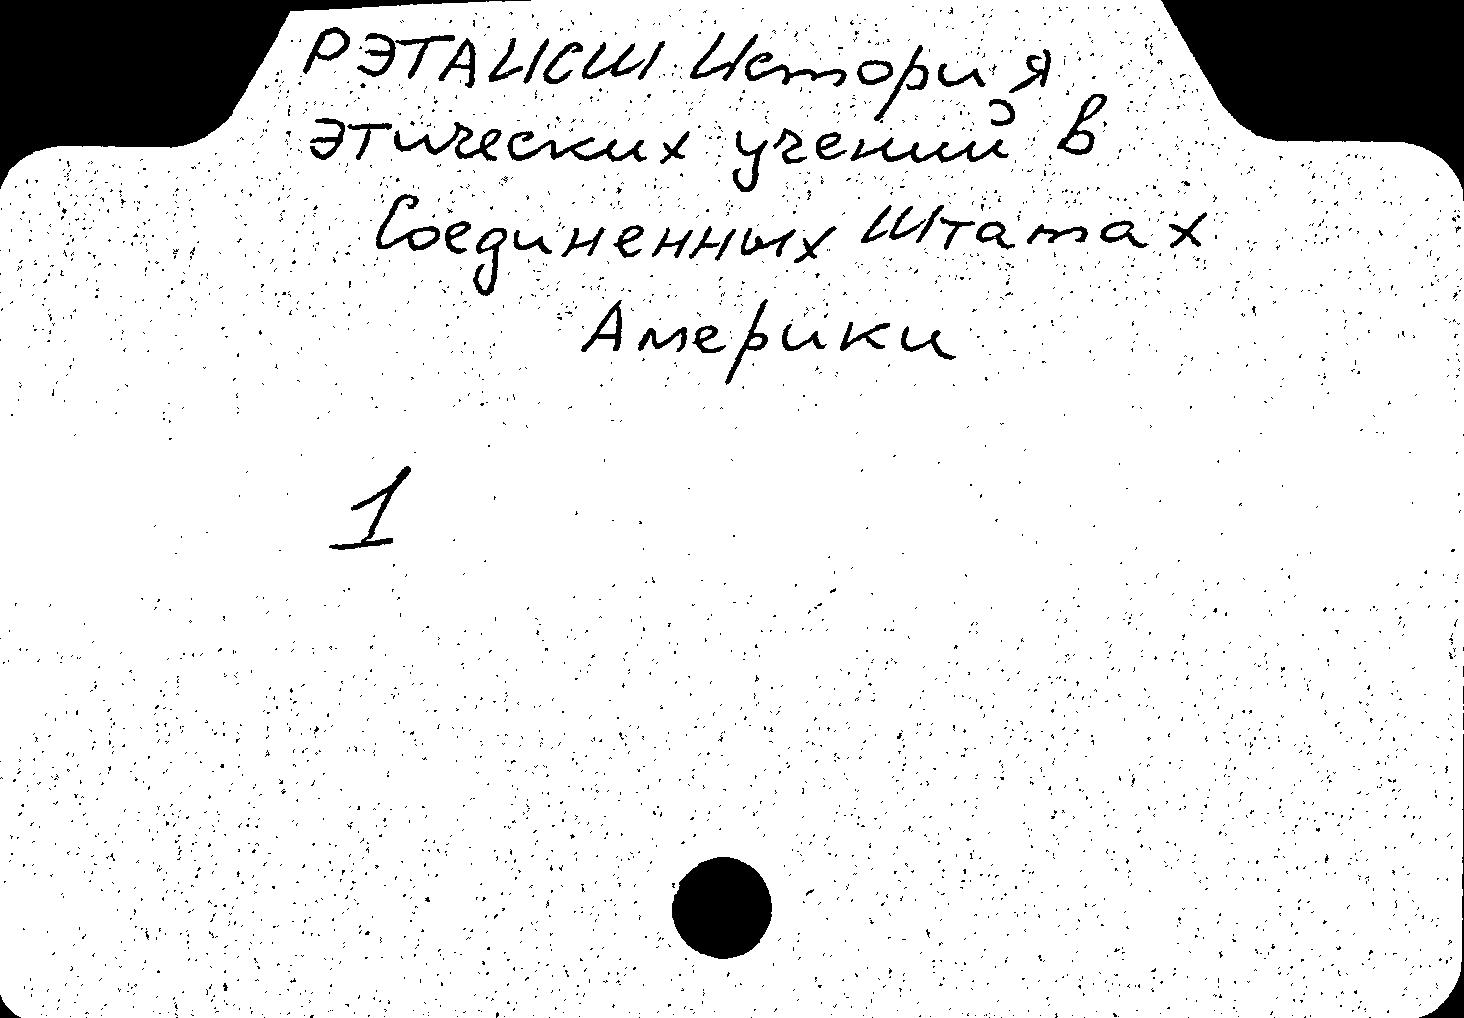 РЭТАИСШ История
этических учений в
Соединенных Штатах
Америки
1